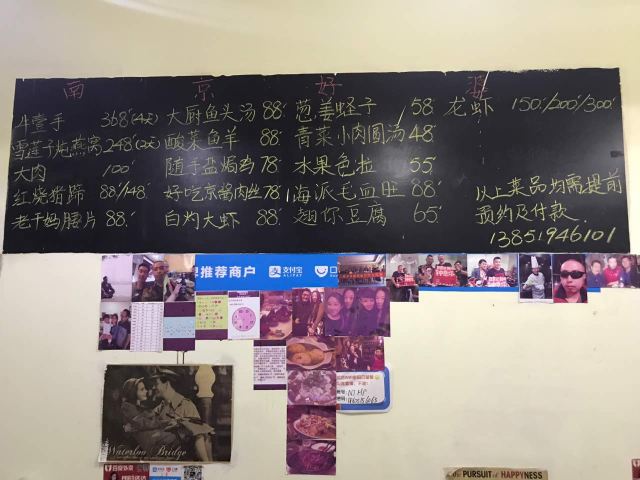 南京好婆
牛壹手 368(4天) 大厨鱼头汤 88 葱姜蛏子 58 龙虾 150/200/300
雪莲子炖燕窝 248(2天) 酸菜鱼羊 88 青菜小肉圆汤 48
大肉 100 随手盐焗鸡 78 水果色拉 55
红烧猪蹄 88/148 好吃京酱肉丝 78 海派毛血旺 88
老干妈腰片 88 白灼大虾 88 翘你豆腐 65
以上菜品均需提前
预约及付款
13851946101
推荐商户 支付宝 ALIPAY 口
Waterloo Bridge
the PURSUIT of HAPPYNESS